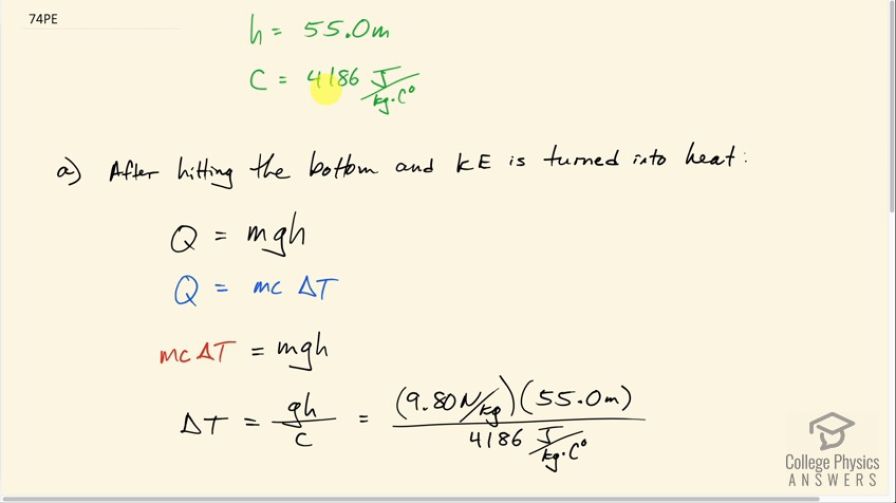 74PE
h = 55.0m
C = 4186 J/kg·C°
a) After hitting the bottom and KE is turned into heat:
Q = mgh
Q = mc ΔT
mcΔT = mgh
ΔT = gh/c = (9.80N/kg)(55.0m)/4186 J/kg·C°
College Physics
ANSWERS